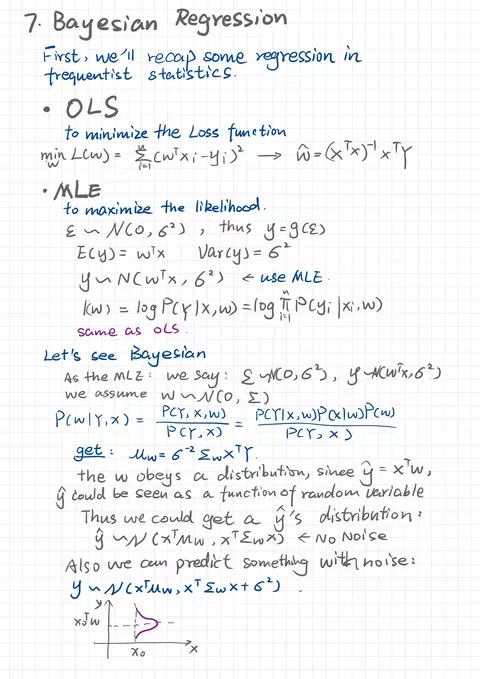 7. Bayesian Regression
First, we'll recap some regression in
frequentist statistics.
• OLS
to minimize the Loss function
min_w L(w) = Σ_{i=1}^{n} (wᵀx_i - y_i)² → ŵ = (xᵀx)⁻¹xᵀY
• MLE
to maximize the likelihood.
ε ~ N(0, σ²), thus y = g(ε)
E(y) = wᵀx Var(y) = σ²
y ~ N(wᵀx, σ²) ← use MLE.
l(w) = log P(Y|x, w) = log ∏_{i=1}^{n} P(y_i|x_i, w)
same as OLS.
Let's see Bayesian
As the MLE: we say: Σ ~ N(0, σ²), y ~ N(wᵀx, σ²)
we assume w ~ N(0, Σ)
P(w|Y, x) = P(Y, x, w) / P(Y, x) = P(Y|x, w)P(x|w)P(w) / P(Y, x)
get: μ_w = σ⁻² Σ_w xᵀY.
the w obeys a distribution, since ŷ = xᵀw,
ŷ could be seen as a function of random variable
Thus we could get a ŷ's distribution:
ŷ ~ N(xᵀμ_w, xᵀΣ_w x) ← No Noise
Also we can predict something with noise:
y ~ N(xᵀμ_w, xᵀΣ_w x + σ²).
y
x₀ᵀw
x₀ x